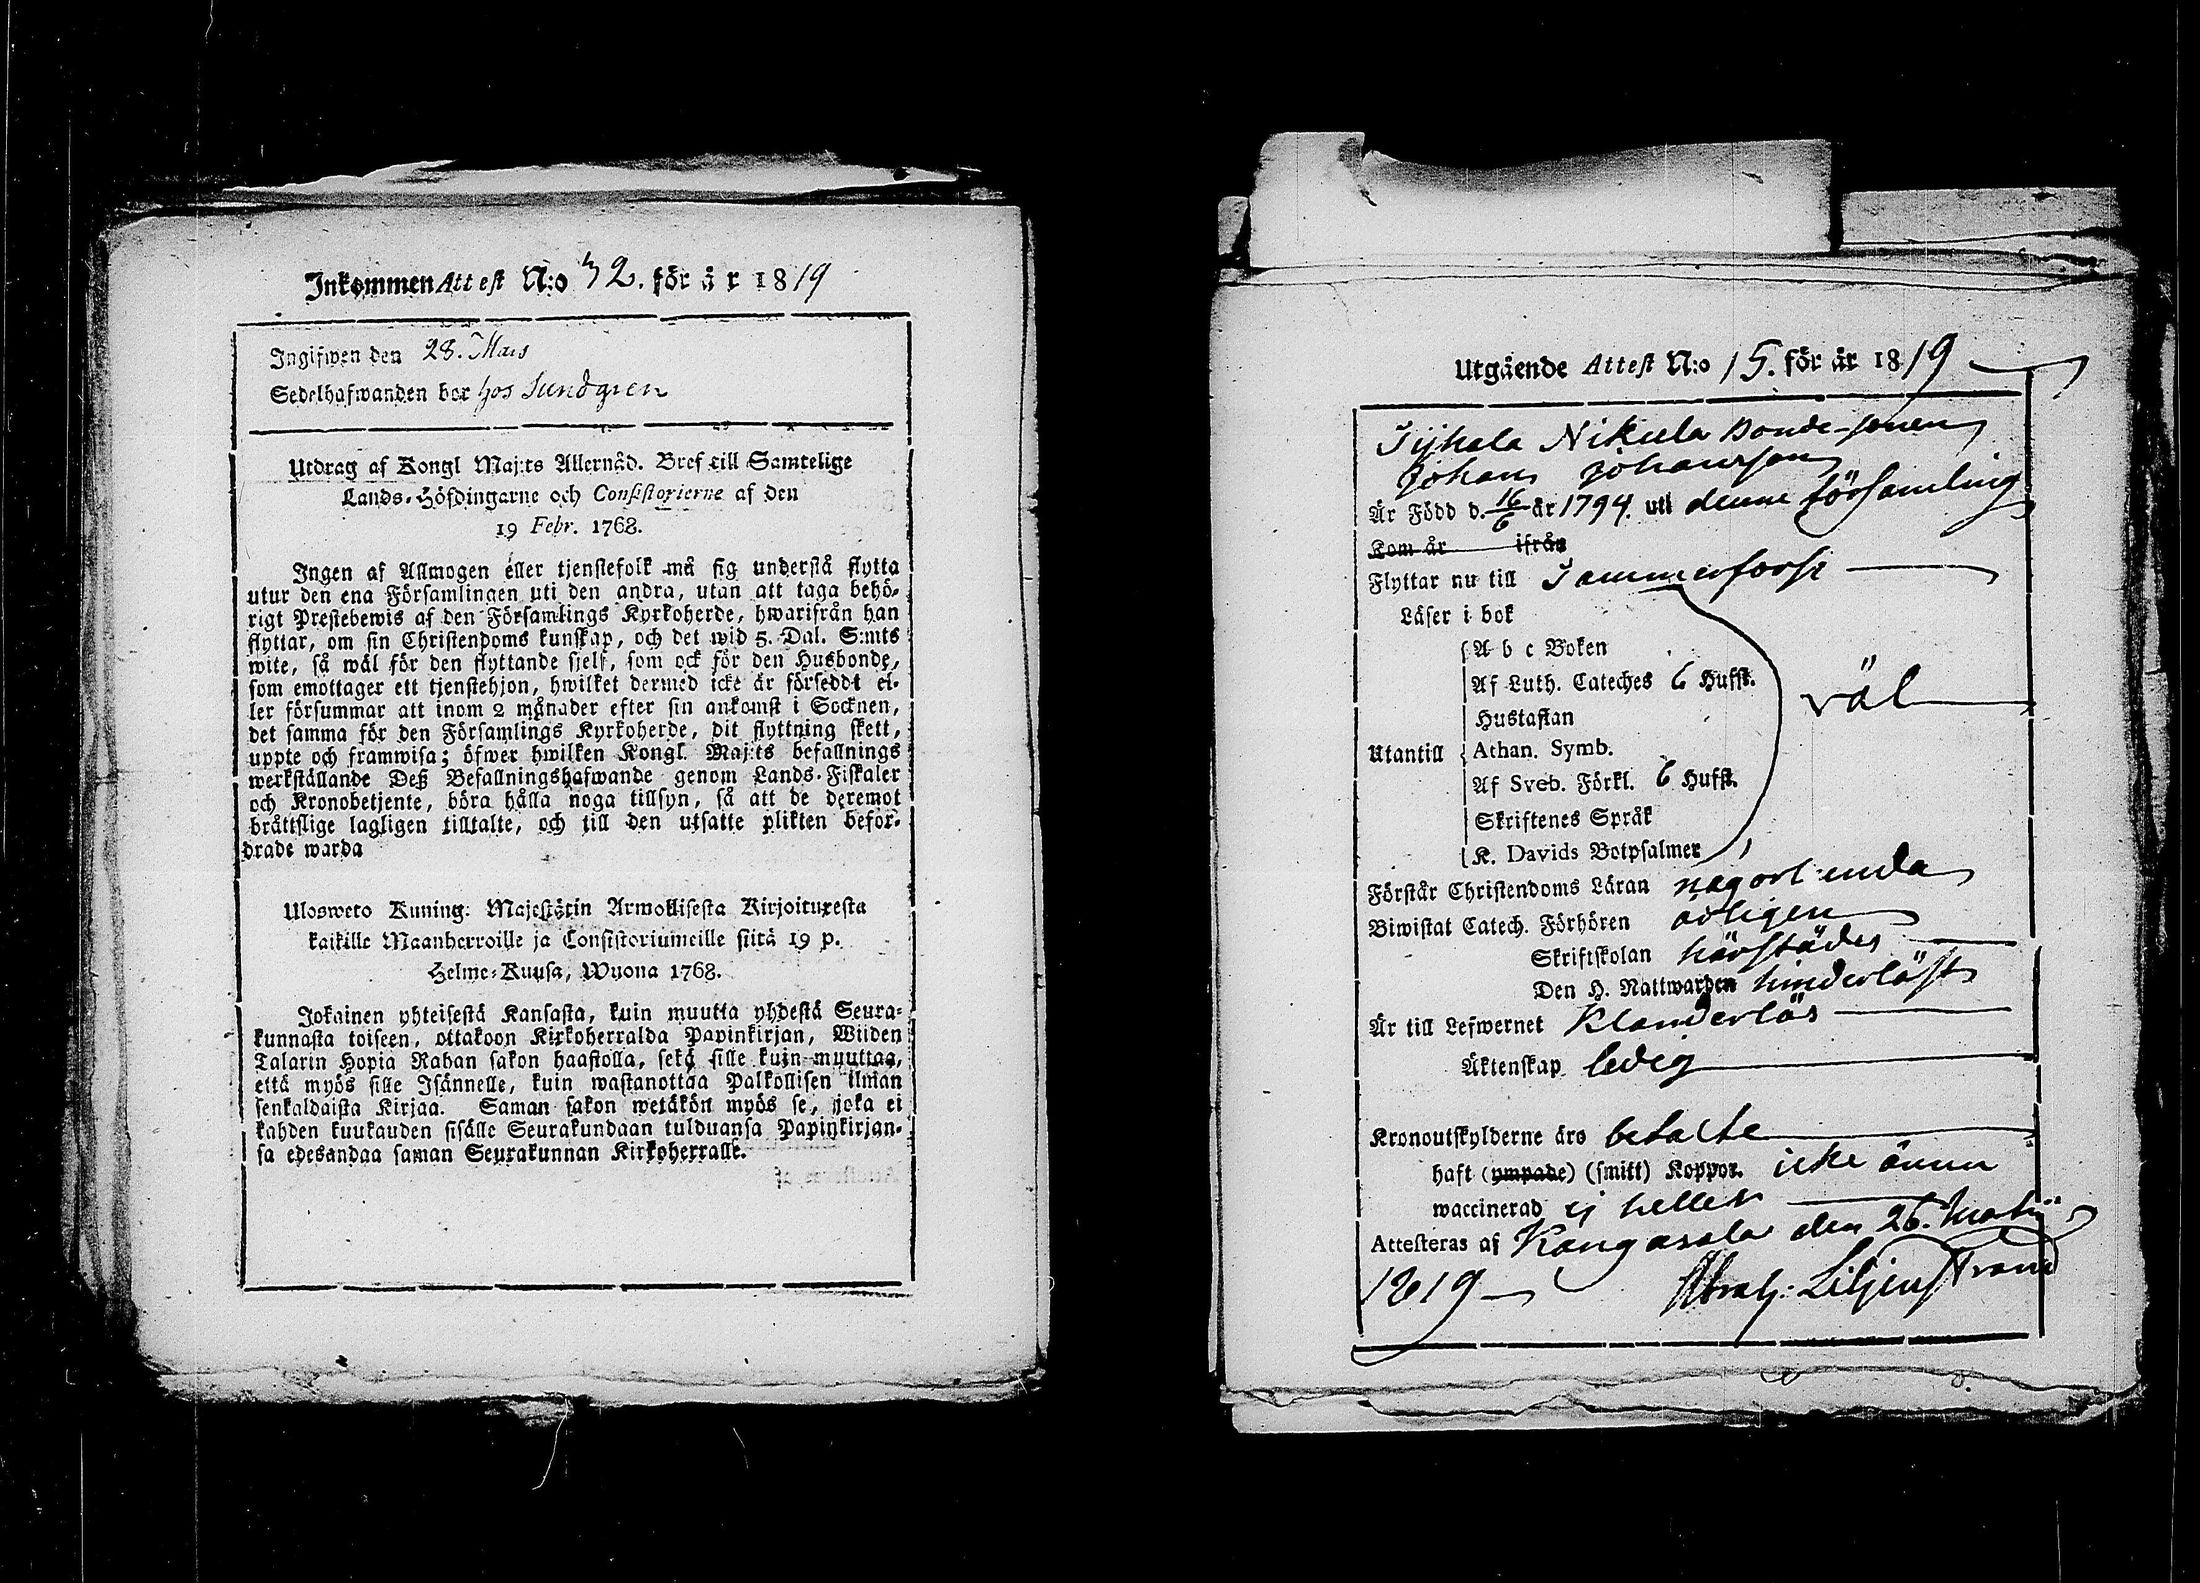 Inkommen Attest N:o 32. för år 1819
Ingifwen den 28. Mars
Sedelhafwanden bor hos Sundgren
Utdrag af Kongl Maj:ts Allernåd. Bref till Samtelige
Lands-Höfdingarne och Consistorierne af den
19 Febr. 1768.
Ingen af Allmogen eller tjenstefolk må sig understå flytta
utur den ena Församlingen uti den andra, utan att taga behö-
rigt Prestebewis af den Församlings Kyrkoherde, hwarifrån han
flyttar, om sin Christendoms kunskap, och det wid 5. Dal. S:mts
wite, så wäl för den flyttande sjelf, som ock för den Husbonde,
som emottager ett tjenstehjon, hwilket dermed icke är försedt el-
ler försummar att inom 2 månader efter sin ankomst i Socknen,
det samma för den Församlings Kyrkoherde, dit flyttning skett,
uppte och framwisa; öfwer hwilken Kongl. Maj:ts befallnings
werkställande Deß Befallningshafwande genom Lands-Fiskaler
och Kronobetjente, böra hålla noga tillsyn, så att de deremot
bråttslige lagligen tilltalte, och till den utsatte plikten befor-
drade warda
Ulosweto Kuning: Majestätin Armollisesta Kirjoituxesta
kaikille Maanherroille ja Consistoriumeille siitä 19 p.
Helme-Kuusa, Wuona 1768.
Jokainen yhteisestä Kansasta, kuin muutta yhdestä Seura-
kunnasta toiseen, ottakoon Kirkoherralda Papinkirjan, Wiiden
Talarin Hopia Rahan sakon haastolla, sekä sille kuin muuttaa,
että myös sille Isännelle, kuin wastanottaa Palkollisen ilman
senkaldaista Kirjaa. Saman sakon wetäkön myös se, joka ei
kahden kuukauden sisälle Seurakundaan tulduansa Papinkirjan-
sa edesandaa saman Seurakunnan Kirkoherralle.
Utgående Attest N:o 15. för år 1819
Nikula Bonde-sonen
Johan Johansson
Är Född d. 16/6 år 1794. uti denne församling
Kom år ifrån
Flyttar nu till Tammerforss
Läser i bok
A b c Boken
Af Luth. Cateches 6 Hufst.
väl
Hustaflan
Utantill Athan. Symb.
Af Sveb. Förkl. 6 Hufst.
Skriftenes Språk
K. Davids Botpsalmer
Förstår Christendoms Läran någorlunda
Biwistat Catech. Förhören årligen
Skriftskolan härstädes
Den H. Nattwarden hinderlöst
Är till Lefwernet Klanderlös
Äktenskap ledig
Kronoutskylderne äro betalte
haft (ympade) (smitt) Koppor. icke ännu
waccinerad ej heller
Attesteras af Kangasala den 26. Martii
1819 Abrah: Liljenstrand